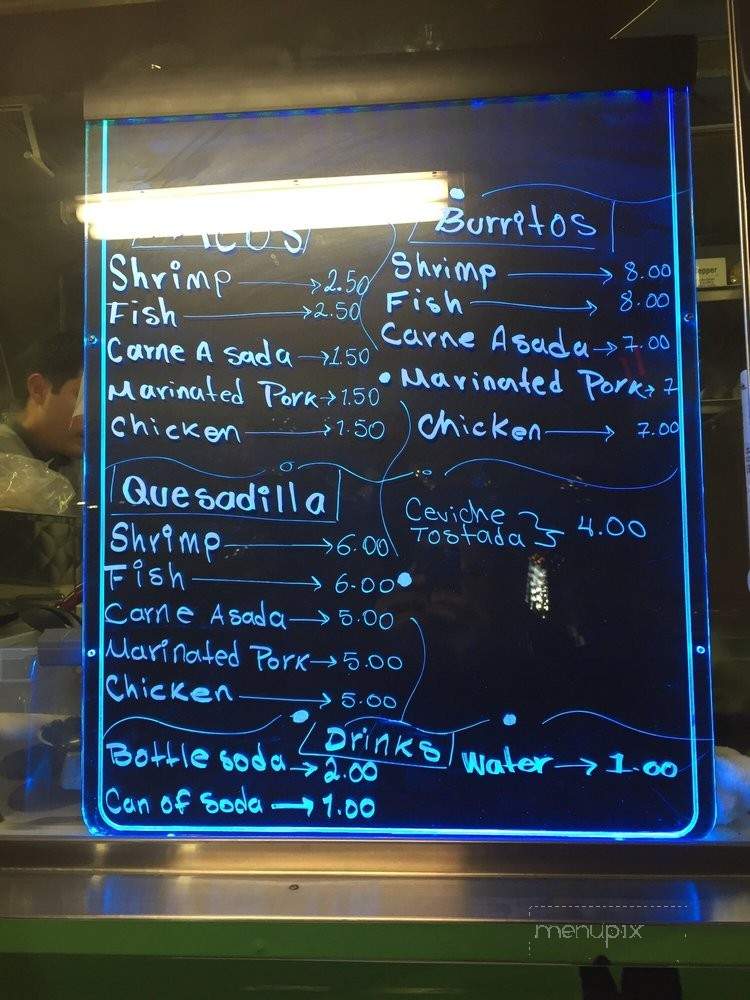 Burritos
Shrimp → 2.50
Fish → 2.50
Carne Asada → 1.50
Marinated Pork → 1.50
Chicken → 1.50
Shrimp → 8.00
Fish → 8.00
Carne Asada → 7.00
Marinated Pork → 7
Chicken → 7.00
Quesadilla
Shrimp → 6.00
Fish → 6.00
Carne Asada → 5.00
Marinated Pork → 5.00
Chicken → 5.00
Ceviche
Tostada 4.00
Drinks
Bottle soda → 2.00
Can of Soda → 1.00
Water → 1.00
menupix